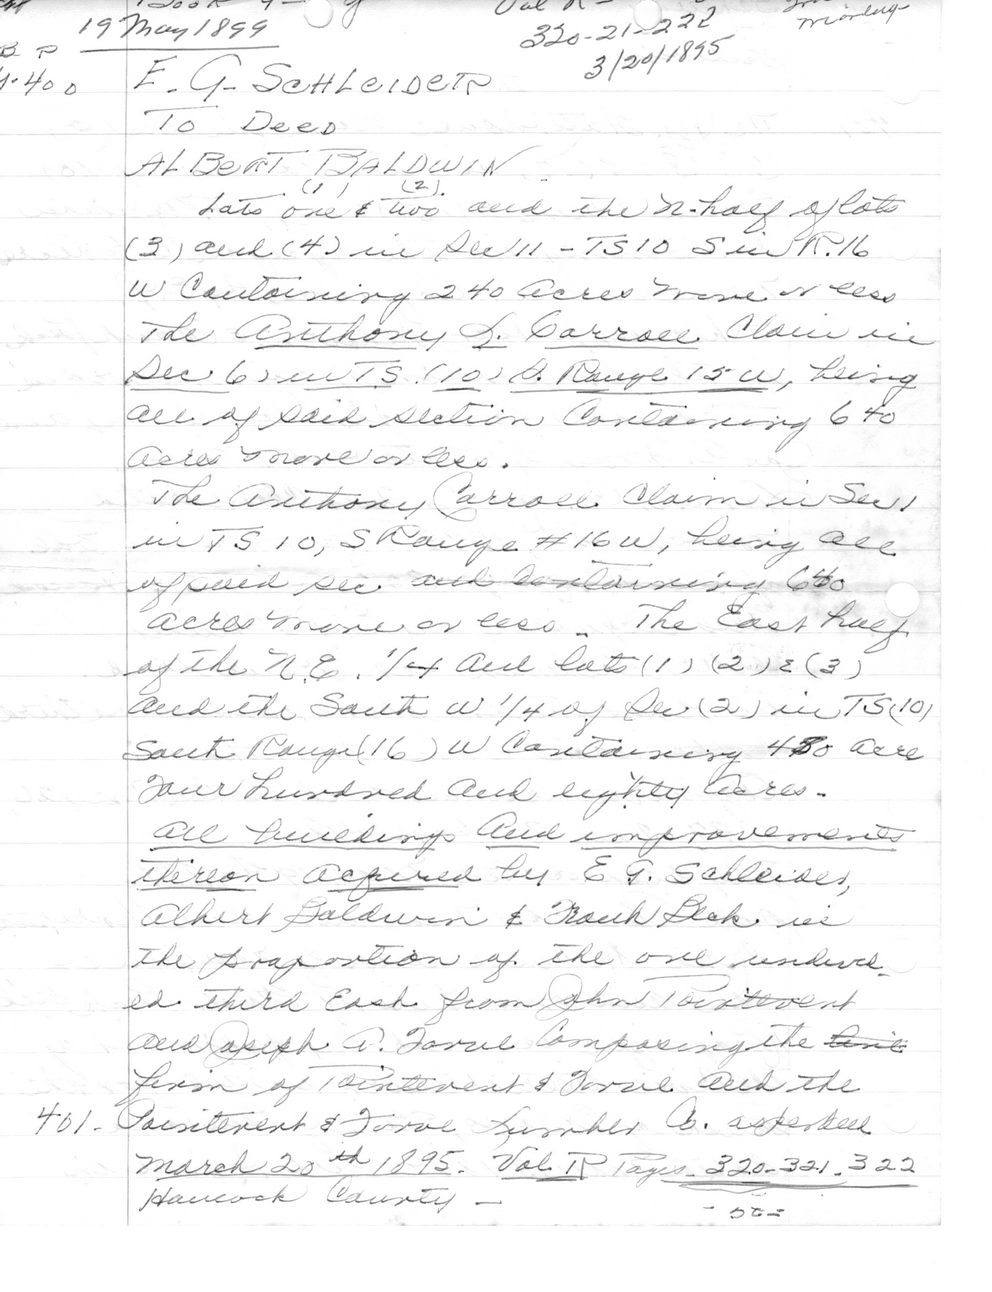 19 May 1899
320-21-222
3/20/1895
B P
400
E. G. SCHLEIDER
To Deed
ALBERT BALDWIN
(1) (2)
Lots one & two and the N-half of lots
(3) and (4) in Sec 11 - TS 10 S in R. 16
W Containing 240 Acres more or less
The Anthony L. Carroll Claim in
Sec 6) in TS. (10) S. Range 15 W, being
all of said section Containing 640
Acres more or less.
The Anthony Carroll Claim in Sec 1
in TS 10, S Range #16 W, being all
of said sec and containing 640
acres more or less - The East half
of the N.E. 1/4 and lots (1) (2) & (3)
and the South W 1/4 of Sec (2) in TS (10)
South Range (16) W Containing 480 acre
Four hundred and eighty Acres.
all buildings and improvements
thereon acquired by E G. Schleider,
Albert Baldwin & Frank Beck in
the proportion of the one undivid-
ed third Each from John Poitevent
and Joseph A. Favre Composing the
firm of Poitevent & Favre and the
401. Poitevent & Favre Lumber Co. as per deed
March 20th 1895. Vol. R Pages 320-321-322
Hancock County -